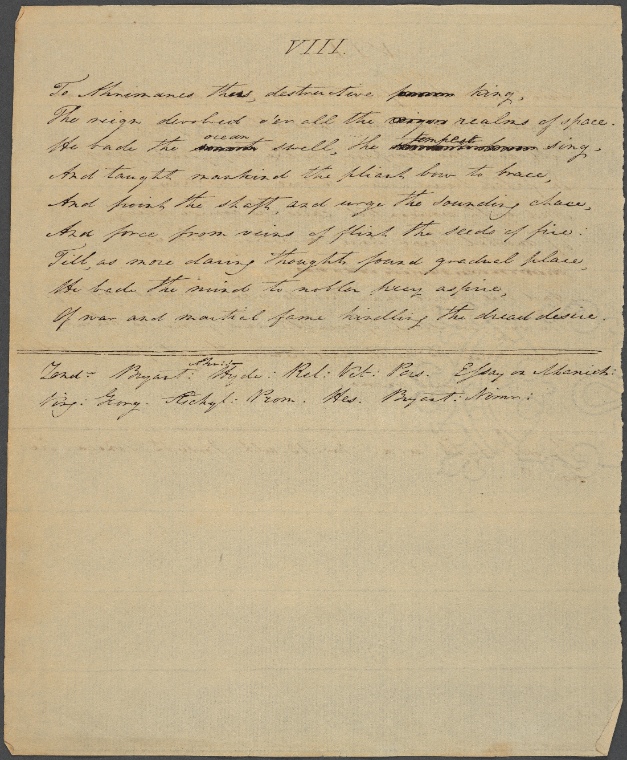 VIII.
To Ahrimanes thus, destructive king,
The reign devolved o'er all the realms of space.
He bade the ocean swell, the tempest sing,
And taught mankind the pliant bow to brace,
And point the shaft, and urge the sounding chace,
And force from veins of flint the seeds of fire:
Till, as more daring thoughts found gradual place,
He bade the mind to nobler prey aspire,
Of war and martial fame kindling the dread desire.
Zend- Bryant: Hyde: Rel: Vet: Pers. Essay on Manich:
Virg: Georg. Æschyl: Prom. Hes. Bryant: Nimr: